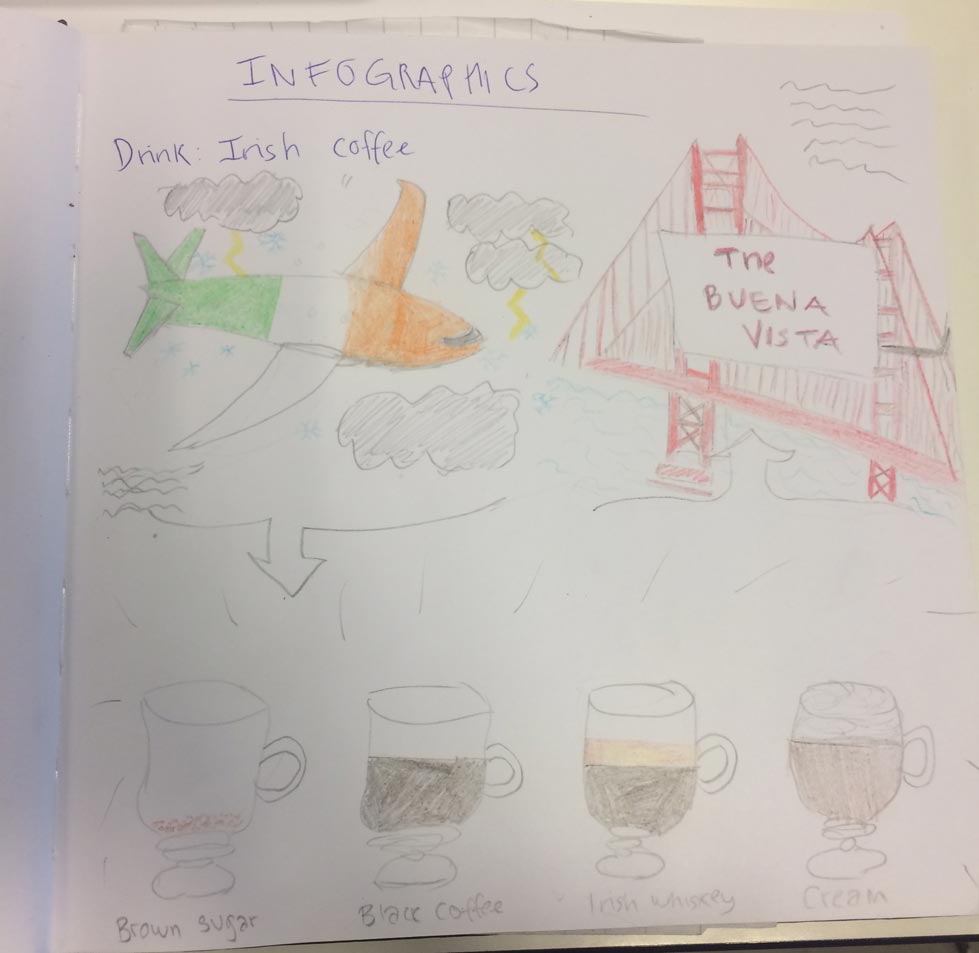 INFOGRAPHICS
Drink: Irish coffee
The
BUENA
VISTA
Brown sugar
Black coffee
Irish whiskey
Cream